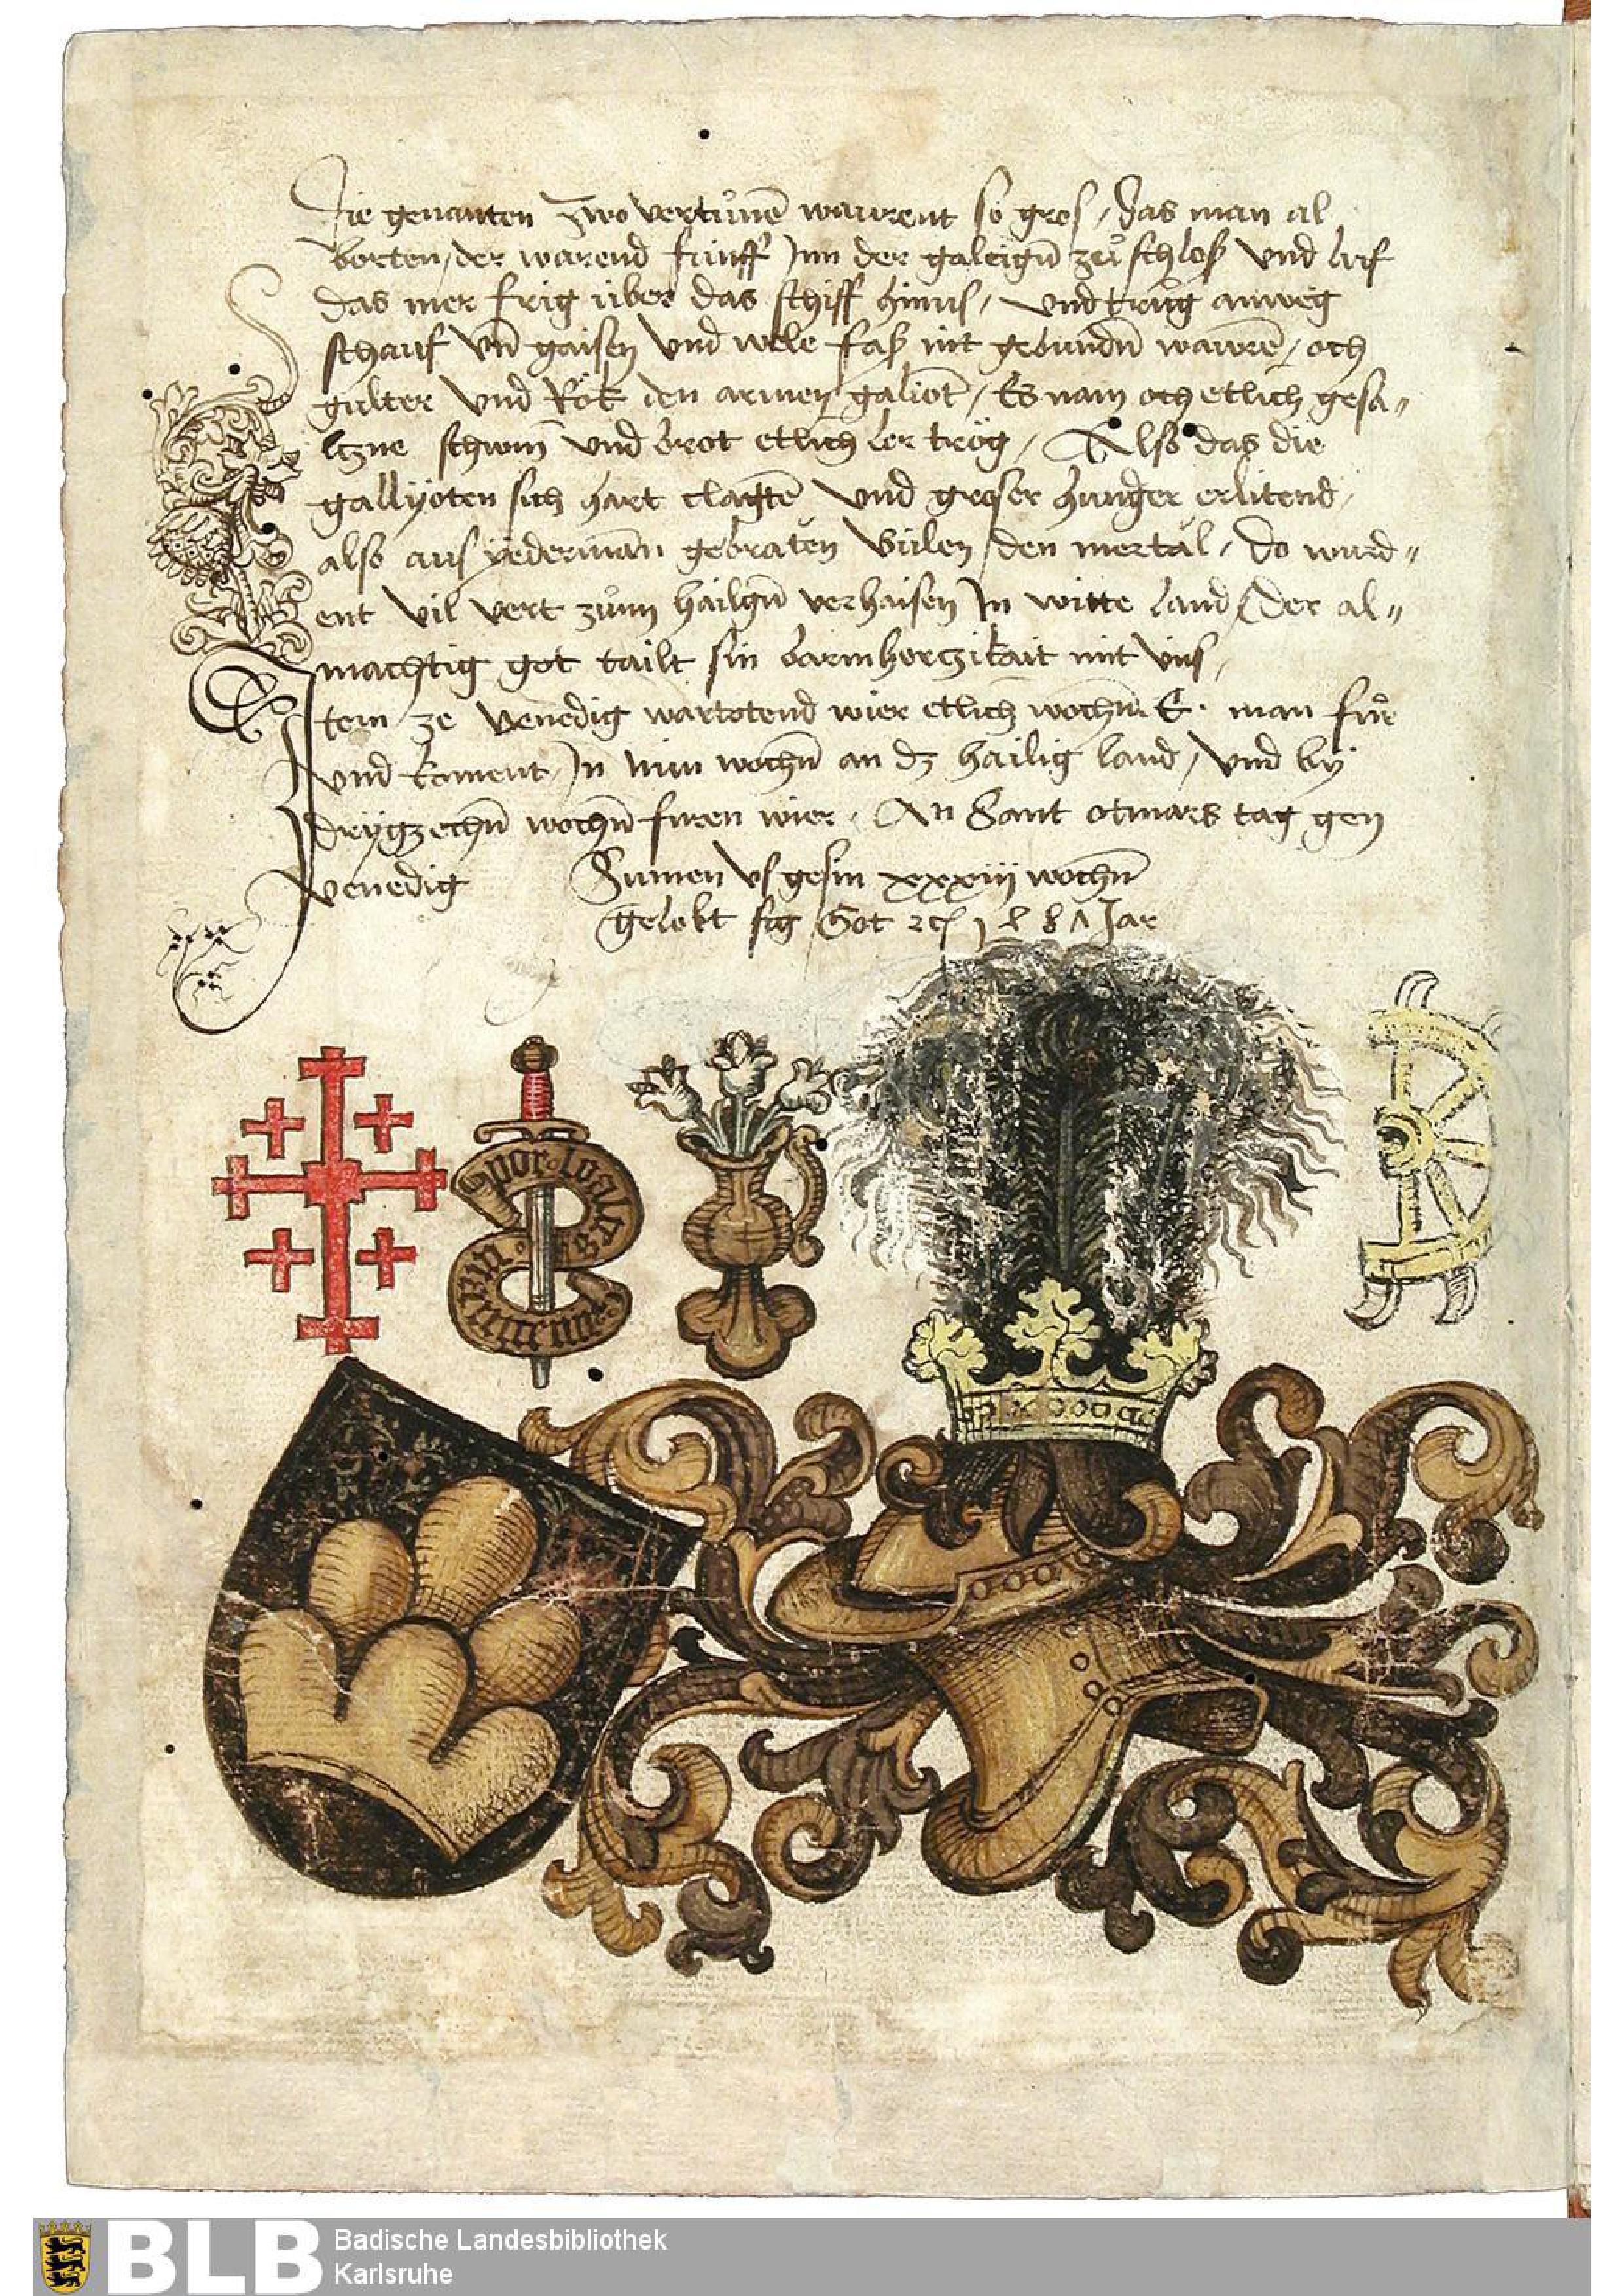 Die genanten zwo vertunē waurent so gros / das man al
borten / der warend fünff Inn der galeigū zůschloß vnd luf
das mer frig über das schiff hinus / vnd trůg anweg
schauf vn̄ gaisen vnd wele faß nit gebundn̄ waurē / och
gulter vnd Rök den armen galiot / Es nam och etlich gesa„
lzne schwin vnd brot etlich ler trög / Also das die
gallyoten sich hart clagtē vnd groser hunger erlitend /
also aus yederman gebraten den mertal / do wurd„
ent vil vert zům hailgn̄ verhaisen In witte land / der al„
machtig got tailt sin barmherczikait mit vns /
Item ze venedig wartotend wier etlich wochn̄ E. man fůr
vnd koment In nün wochn̄ an dz hailig land / vnd by
drygzechn̄ wochn̄ furen wier. An Sant otmars tag gen
venedig Sumen vs gesin xxxiij wochn̄
Gelobt sig Got 1 4 8 7 Jar
por loales
BLB Badische Landesbibliothek
Karlsruhe